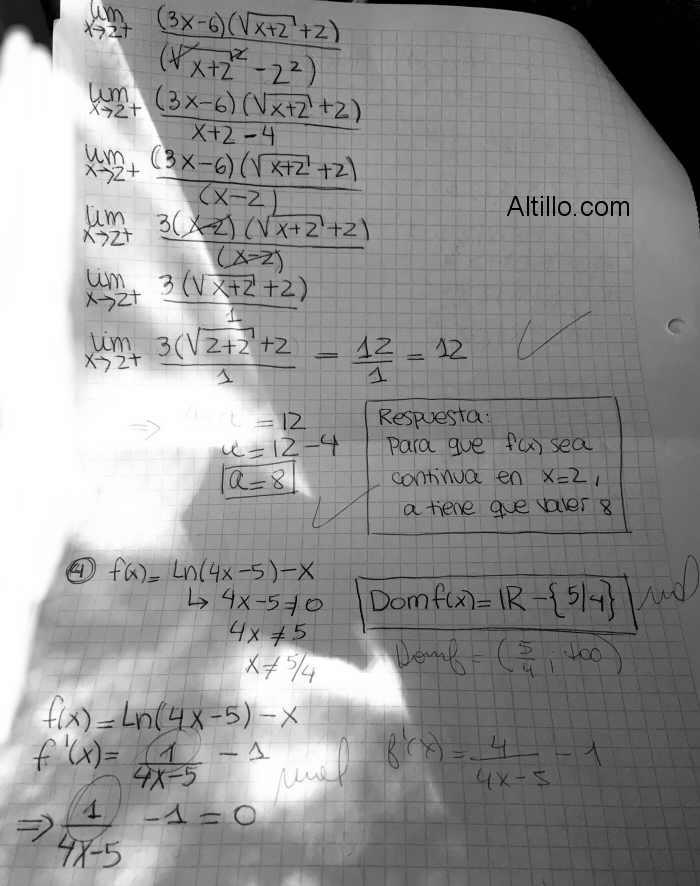 lim x→2+ (3x-6)(√x+2 +2) / (√x+2² - 2²)
lim x→2+ (3x-6)(√x+2 +2) / x+2-4
lim x→2+ (3x-6)(√x+2 +2) / (x-2)
Altillo.com
lim x→2+ 3(x-2)(√x+2 +2) / (x-2)
lim x→2+ 3(√x+2 +2) / 1
lim x→2+ 3(√2+2 +2 / 1 = 12/1 = 12
⇒ = 12
a = 12 - 4
a = 8
Respuesta:
Para que f(x) sea
continua en x=2,
a tiene que valer 8
④ f(x)= Ln(4x-5)-x
↳ 4x-5≠0
4x≠5
x≠5/4
Domf(x)=IR-{5/4} mal
Domf = (5/4; +∞)
f(x)=Ln(4x-5)-x
f'(x)= 1/4x-5 - 1 mal
f'(x)= 4/4x-5 - 1
⇒ 1/4x-5 - 1 = 0